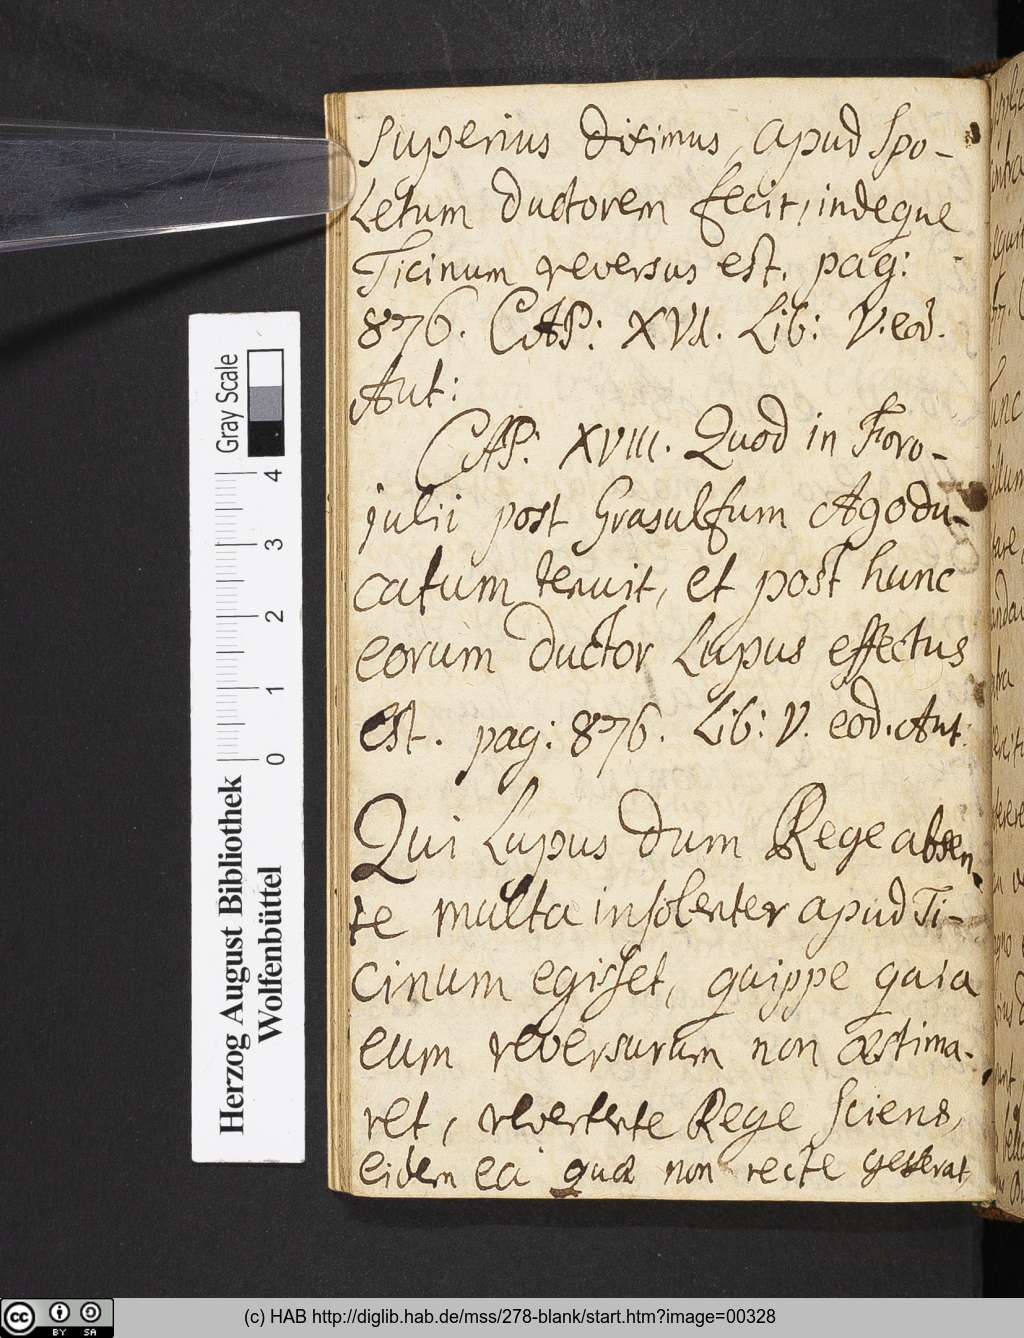 superius diximus, apud Spo-
Letum ductorem fecit, indeque
Ticinum reversus est. pag:
876. CAP: XVI. Lib: V. eod.
Aut:
CAP: XVIII. Quod in Foro-
julii post Grasulfum Ago du-
catum tenuit, et post hunc
eorum ductor Lupus effectus
est. pag: 876. Lib: V. eod. Aut:
Qui Lupus dum Rege absen-
te multa insolenter apud Ti-
cinum egisset, quippe quia
eum reversurum non æstima-
ret, revertente Rege sciens,
eidem ea quæ non recte gesserat,
Gray Scale
4
3
2
1
0
Herzog August Bibliothek
Wolfenbüttel
cc BY SA
(c) HAB http://diglib.hab.de/mss/278-blank/start.htm?image=00328